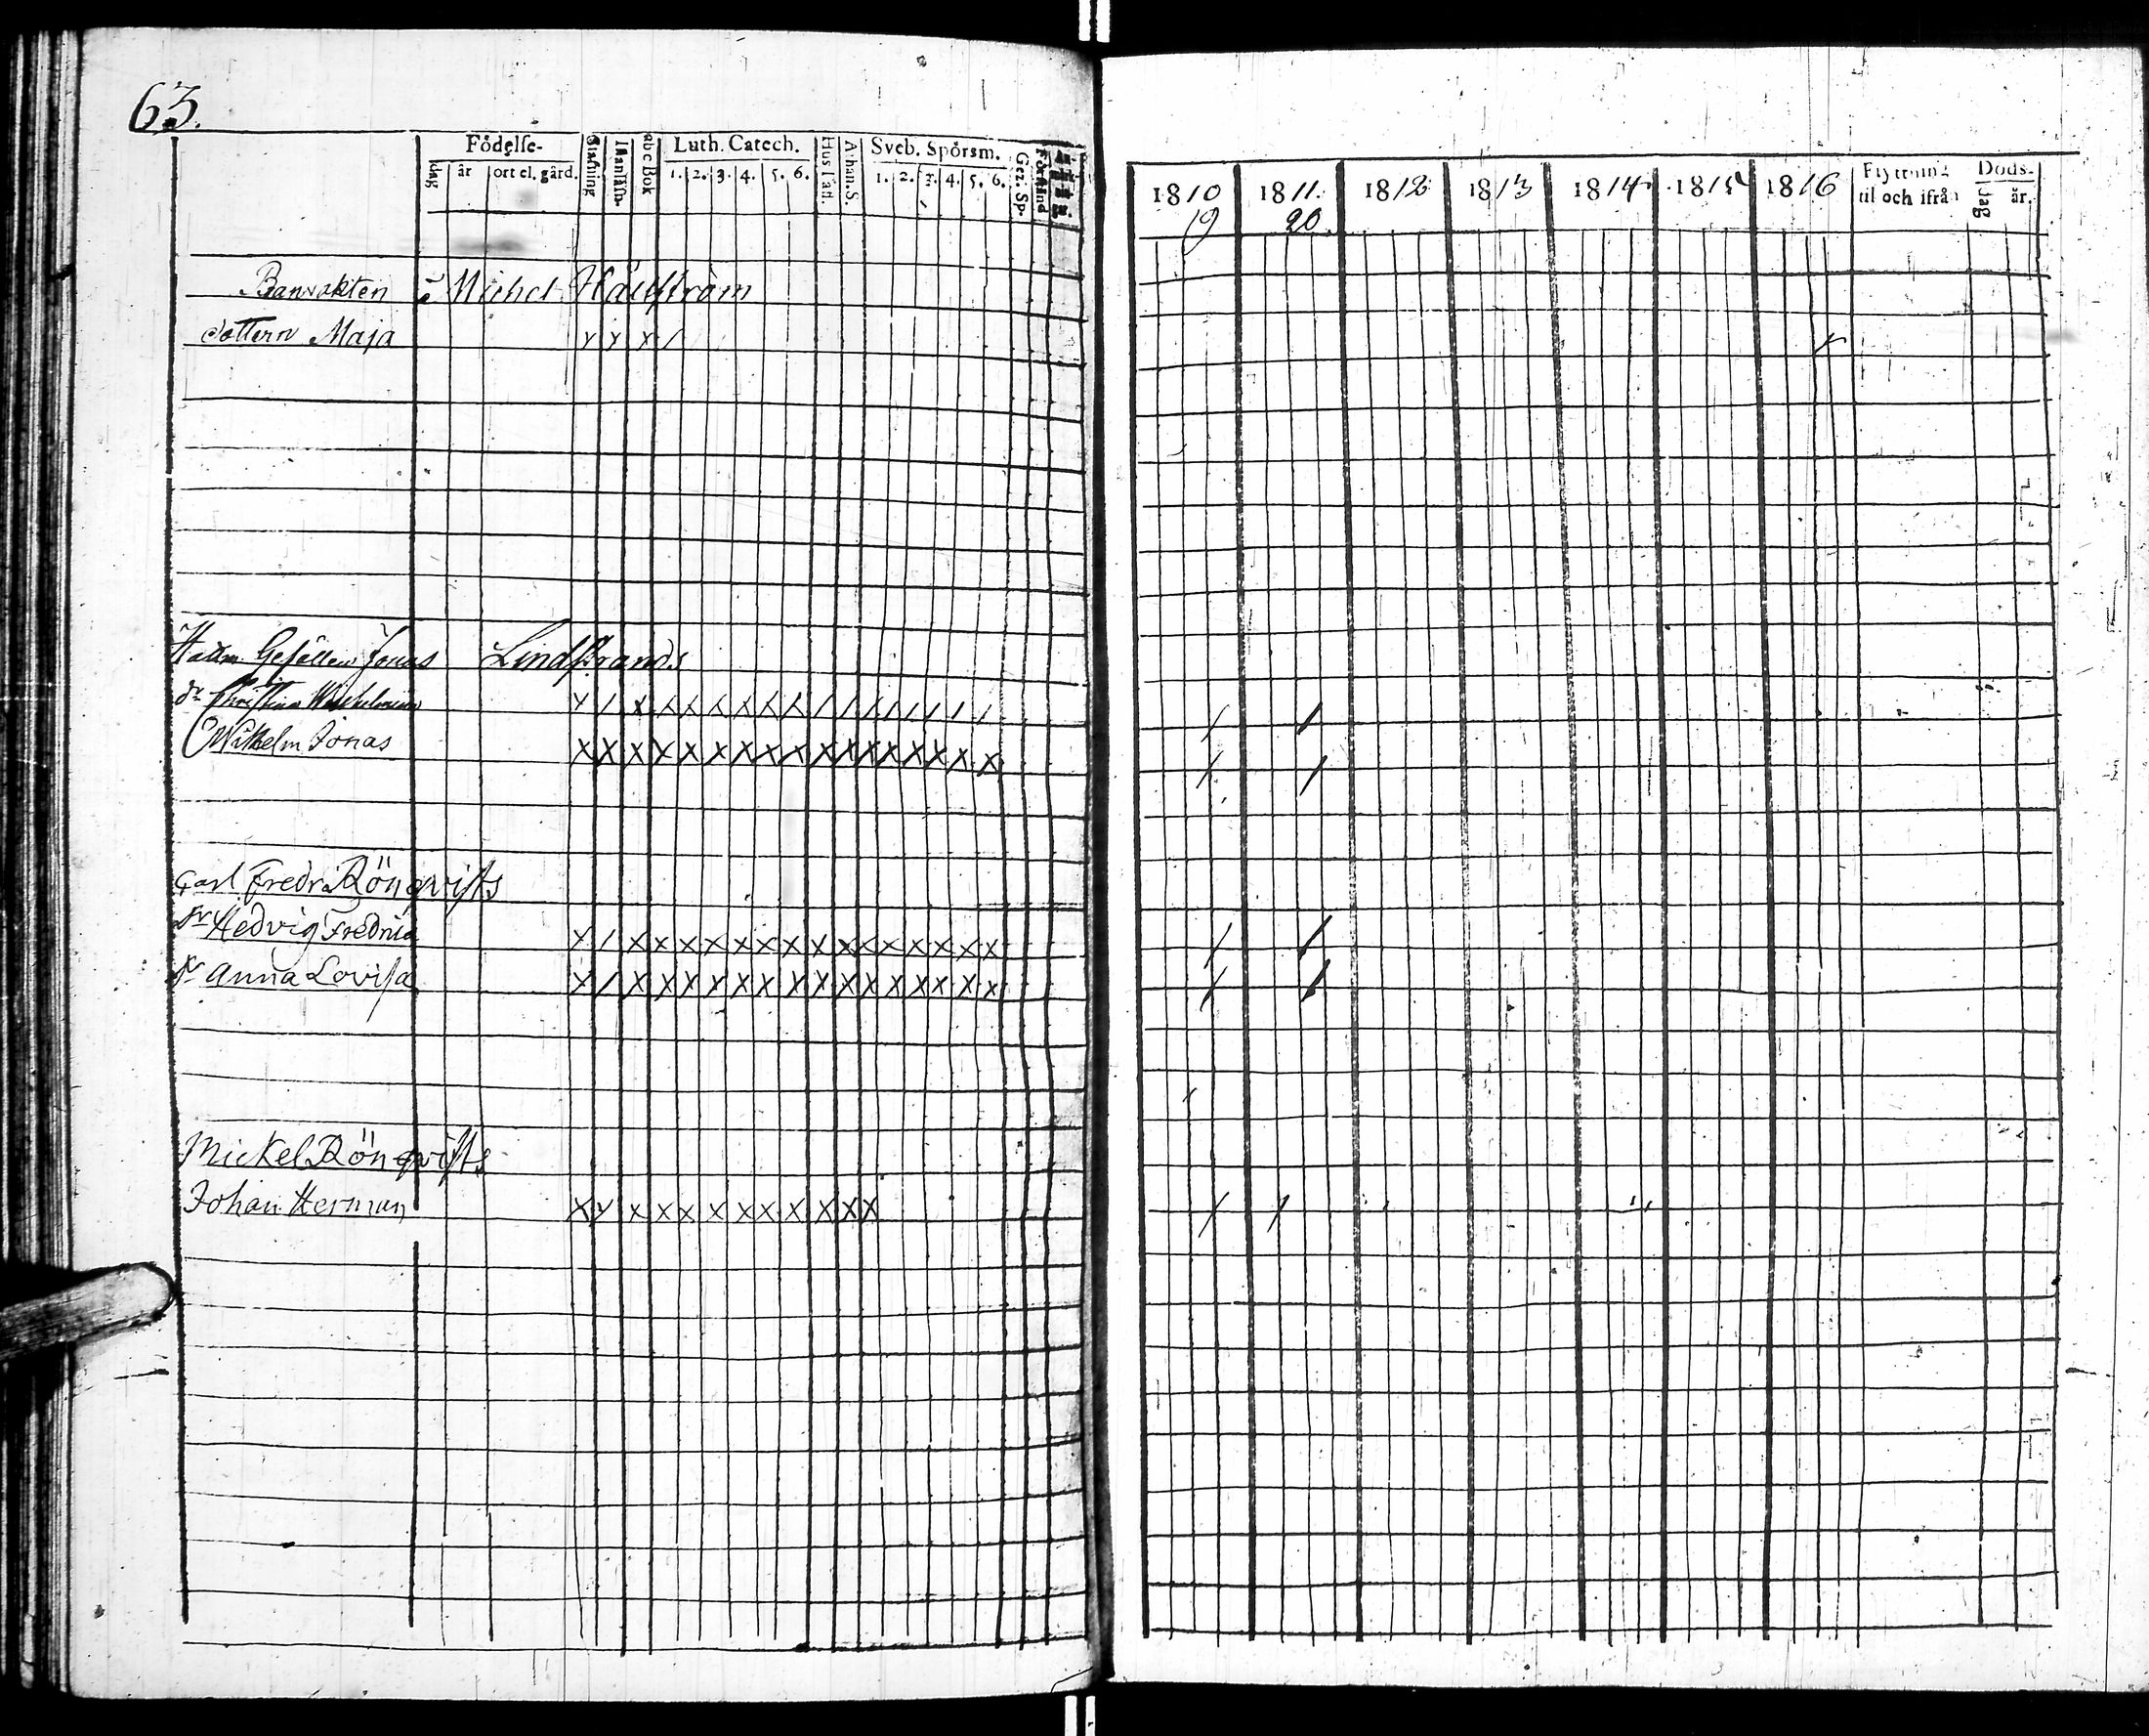 63.
Födelse-
dag år ort el. gård.
Stafning
Innanläsn.
abc Bok
Luth. Catech.
1. 2. 3. 4. 5. 6.
Hus Tafl.
Athan. S.
Sveb. Spörsm.
1. 2. 3. 4. 5. 6.
Gez. Sp.
Förstånd
1810 1811. 1812 1813 1814 1815 1816
19 20
Flyttning
til och ifrån
Döds-
dag år.
Banvakten Michel
dottern Maja
Gesällen Jonas Lindstrands
Wilhelm Jonas
Carl Fredr. Rönqvists
Hedvig Fredrica
Anna Lovisa
Mickel Rönqvists
Johan Herman